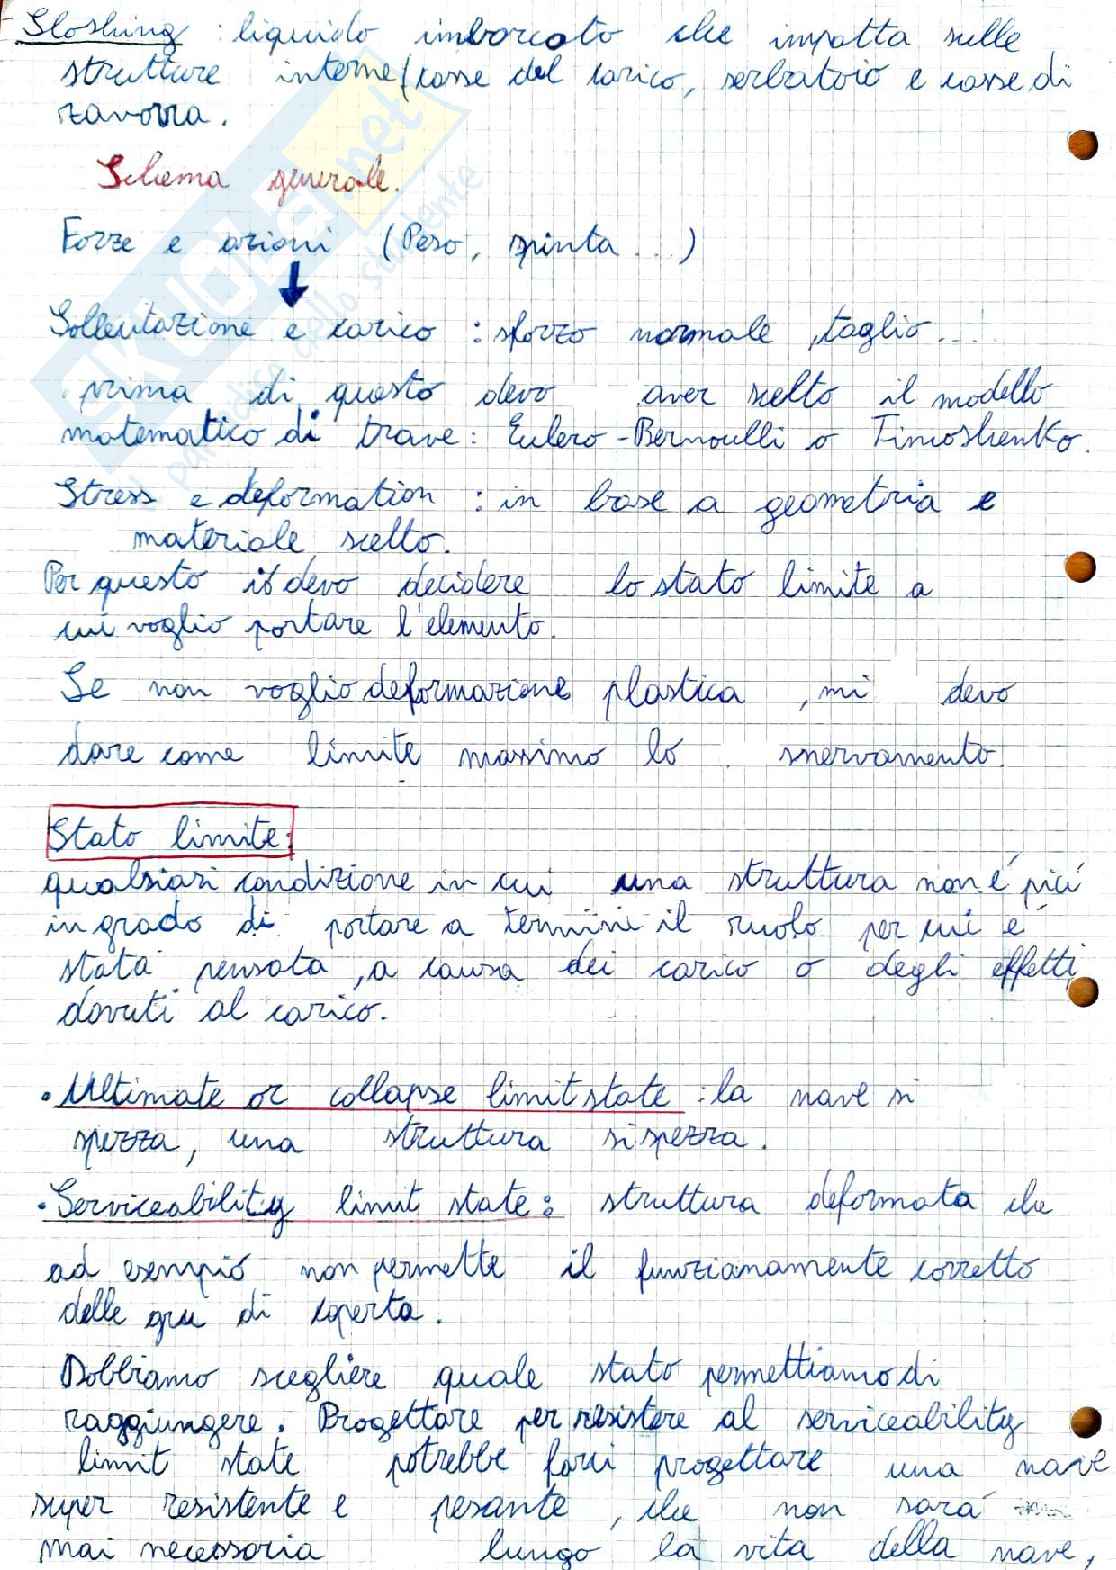 Sloshing : liquido imbarcato che impatta sulle
strutture interne/casse del carico, serbatoio e casse di
zavorra.
Schema generale.
Forze e azioni (Peso, spinta...)
Sollecitazione e carico : sforzo normale, taglio....
prima di questo devo aver scelto il modello
matematico di trave: Eulero-Bernoulli o Timoshenko.
Stress e deformation : in base a geometria e
materiale scelto.
Per questo devo decidere lo stato limite a
cui voglio portare l'elemento.
Se non voglio deformazione plastica, mi devo
dare come limite massimo lo snervamento.
Stato limite:
qualsiasi condizione in cui una struttura non é piú
in grado di portare a termini il ruolo per cui é
stata pensata, a causa dei carico o degli effetti
dovuti al carico.
• Ultimate or collapse limit state : la nave si
spezza, una struttura si spezza.
• Serviceability limit state: struttura deformata che
ad esempio non permette il funzionamente corretto
delle gru di coperta.
Dobbiamo scegliere quale stato permettiamo di
raggiungere. Progettare per resistere al serviceability
limit state potrebbe farci progettare una nave
super resistente e pesante, che non sará
mai necessaria lungo la vita della nave,
skuola.net
paradiso dello studente